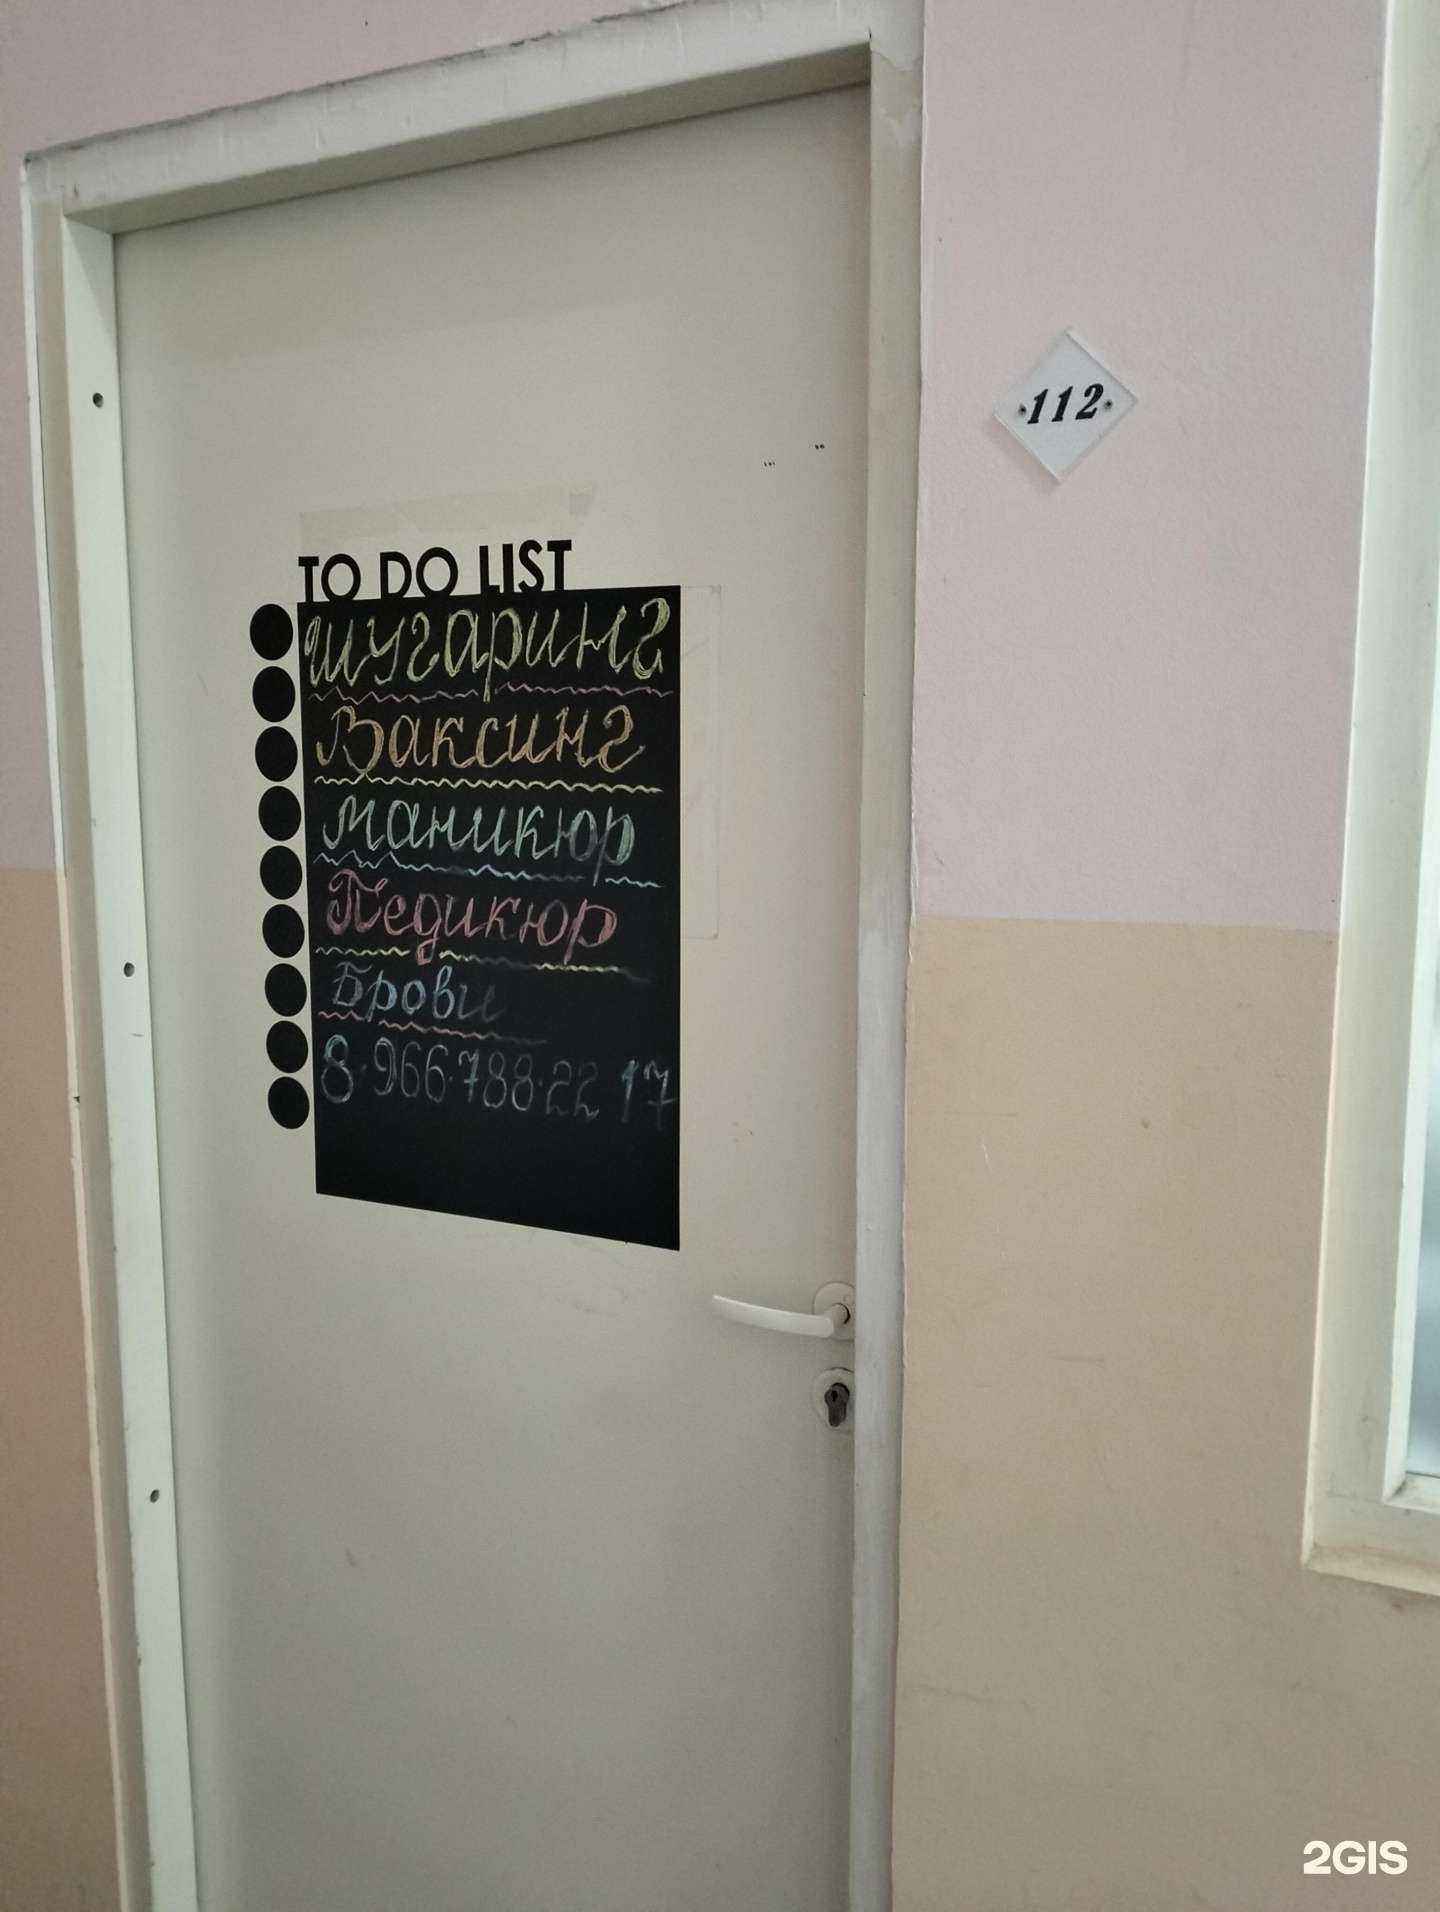 112
TO DO LIST
шугаринг
Ваксинг
маникюр
Педикюр
Брови
8·966·788·22 17
2GIS